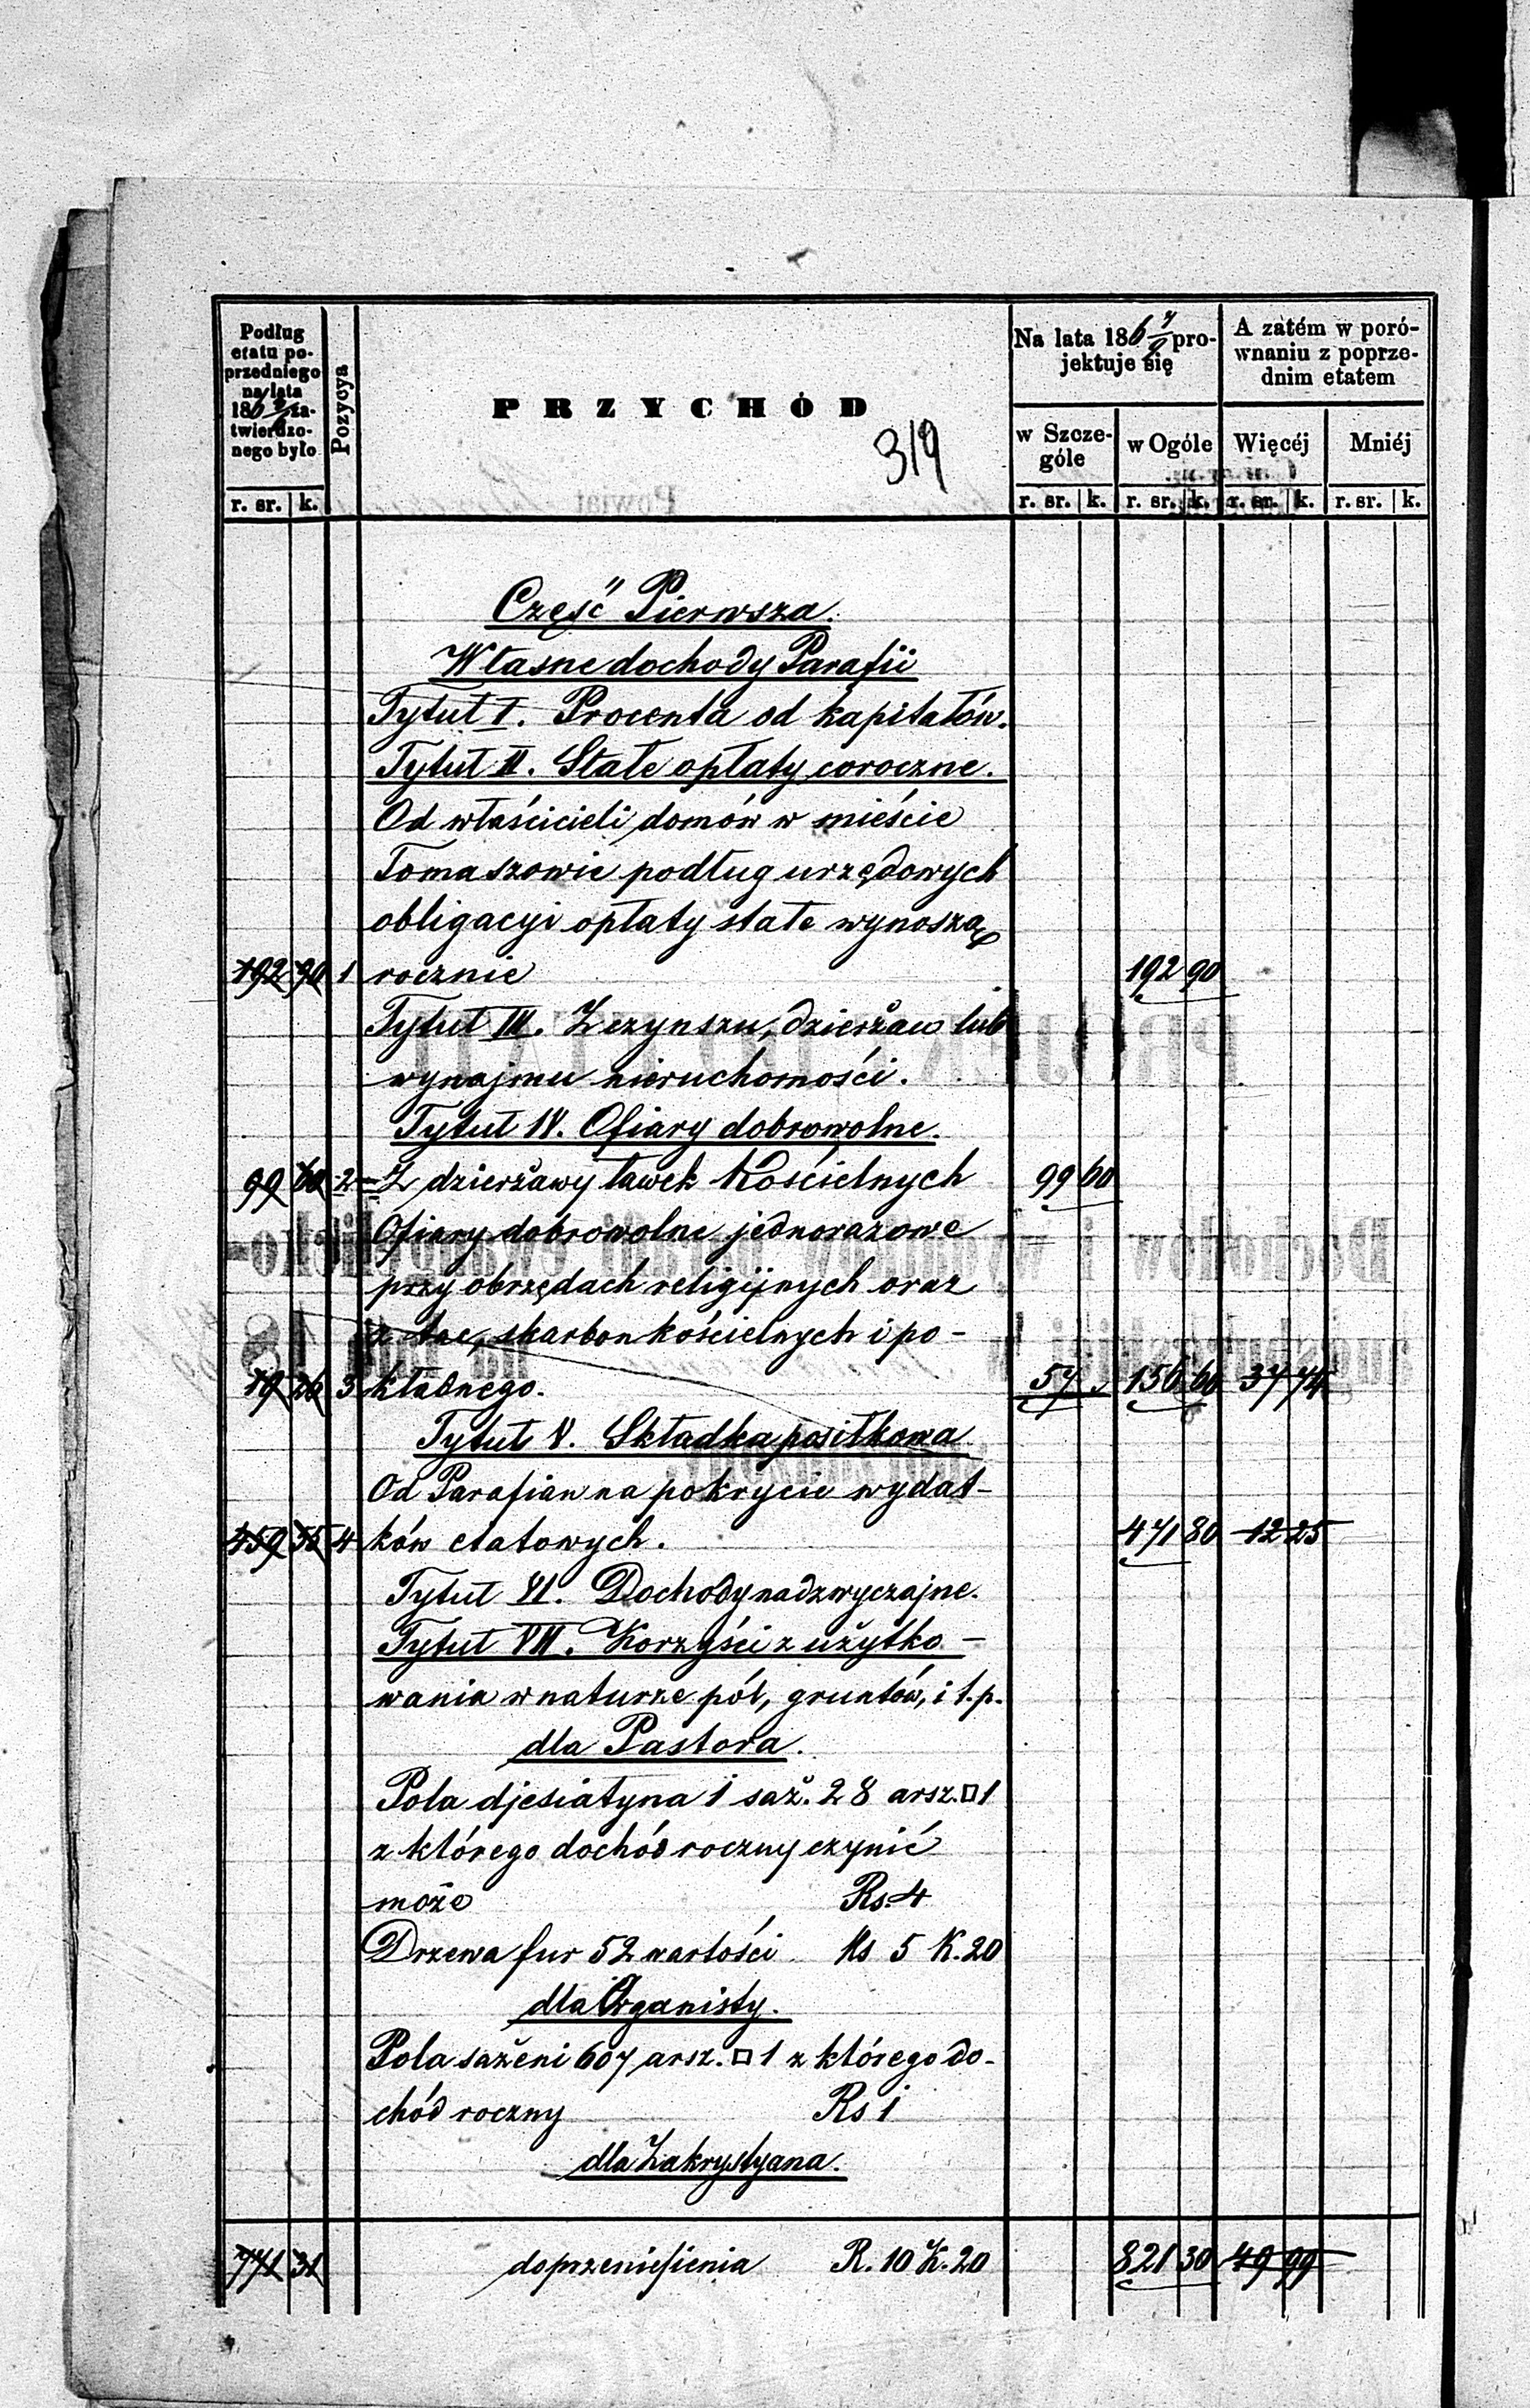 Podług
etatu po-
przedniego
na lata
186 za-
twierdzo-
nego było
Pozycya
PRZYCHÓD
319
Na lata 186 7/9 pro-
jektuje się
A zatém w poró-
wnaniu z poprze-
dnim etatem
w Szcze-
góle
w Ogóle
Więcéj
Mniéj
r. sr. k. r. sr. k. r. sr. k. r. sr. k. r. sr. k.
Część Pierwsza.
Własne dochody Parafii
Tytuł I. Procenta od kapitałów.
Tytuł II. Stałe opłaty coroczne.
Od właścicieli domów w mieście
Tomaszowie podług urzędowych
obligacyi opłaty stałe wynoszą
192 90 1 rocznie 192 90
Tytuł III. Z czynszu, dzierżaw lub
wynajmu nieruchomości.
Tytuł IV. Ofiary dobrowolne.
99 60 2 Z dzierżawy ławek Kościelnych 99 60
Ofiary dobrowolne jednorazowe
przy obrzędach religijnych oraz
z tac, skarbon kościelnych i po-
19 26 3 kładnego. 57 156 60 37 74
Tytuł V. Składka posiłkowa
Od Parafian na pokrycie wydat-
459 55 4 ków etatowych. 471 80 12 25
Tytuł VI. Dochody nadzwyczajne.
Tytuł VII. Korzyści z użytko-
wania w naturze pól, gruntów, i t.p.
dla Pastora.
Pola djesiatyna 1 saż. 28 arsz. □ 1
z którego dochód roczny czynić
może Rs. 4
Drzewa fur 52 wartości Rs 5 K. 20
dla Organisty.
Pola sażeni 607 arsz. □ 1 z którego do-
chód roczny Rs 1
dla Zakrystyana.
771 31 do przeniesienia R. 10 K. 20 821 30 49 99